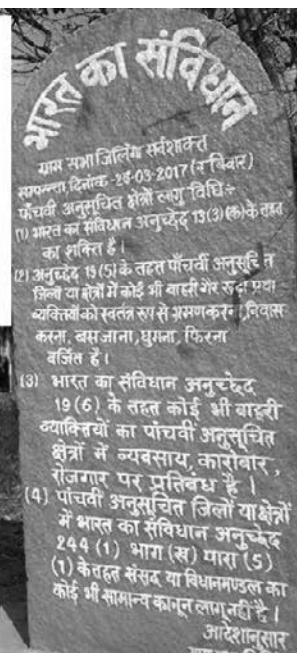 भारत का संविधान
ग्राम सभा जिलिंगा सर्वशक्ति
सम्पन्नता दिनांक -26-03-2017 (रविवार)
पाँचवी अनुसूचित क्षेत्रों लागु विधि ÷
(1) भारत का संविधान अनुच्छेद 13(3)(क) के तहत
का शक्ति है।
(2) अनुच्छेद 19(5) के तहत पाँचवी अनुसूचित
जिलों या क्षेत्रों में कोई भी बाहरी गैर रूढ़ा प्रथा
व्यक्तियों को स्वतंत्र रूप से भ्रमण करना, निवास
करना, बस जाना, घुमना, फिरना
वर्जित है।
(3) भारत का संविधान अनुच्छेद
19(6) के तहत कोई भी बाहरी
व्याक्तियों का पांचवीं अनुसूचित
क्षेत्रों में व्यवसाय, कारोबार,
रोजगार पर प्रतिबंध है।
(4) पांचवीं अनुसूचित जिलों या क्षेत्रों
में भारत का संविधान अनुच्छेद
244 (1) भाग (ख) पारा (5)
(1) के तहत संसद या विधानमण्डल का
कोई भी सामान्य कानून लागू नहीं है।
आदेशानुसार